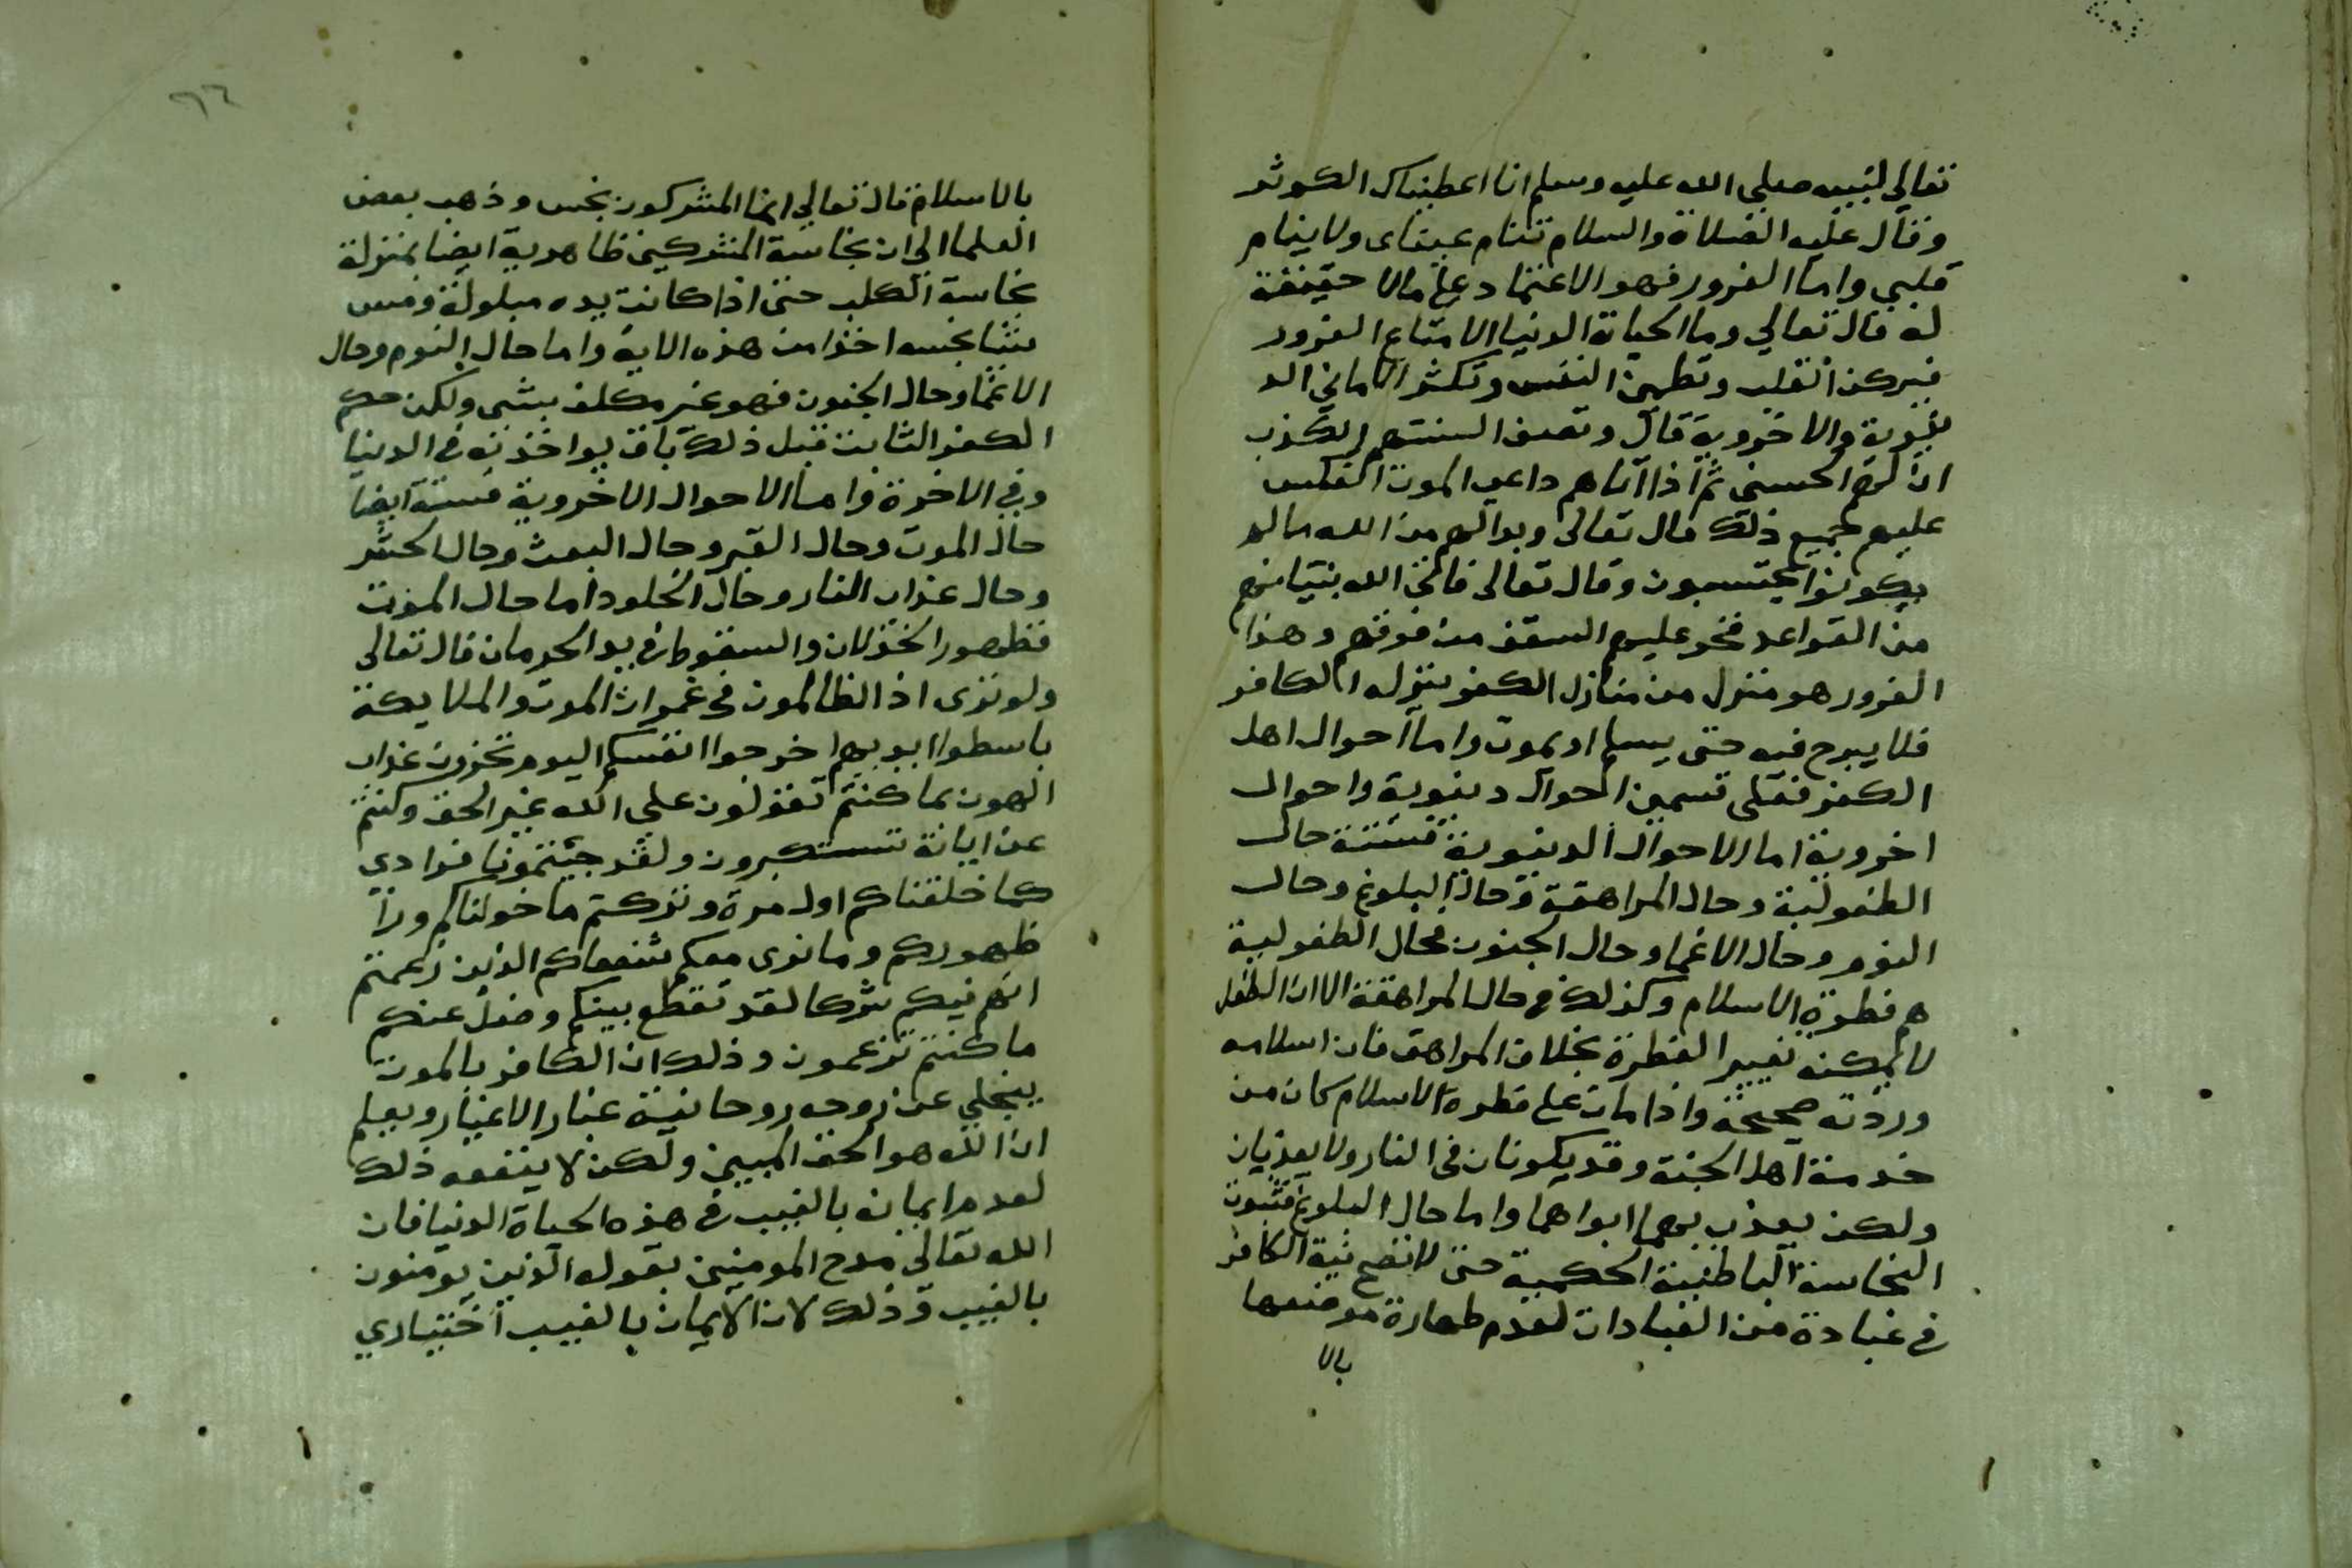 تعالي لنبيه صلي الله عليه وسلم انا اعطيناك الكوثر
وقال عليه الصلاة والسلام تنام عيناي ولا ينام
قلبي واما الغرور فهو الاعتماد علي مالا حقيقة
له قال تعالي وما الحياة الدنيا الا متاع الغرور
فيركن القلب وتطمئن النفس وتكثر الاماني الد
نيوية والاخروية قال وتصف السنتهم الكذب
ان لهم الحسني ثم اذا اتاهم داعي الموت انعكس
عليهم جميع ذلك قال تعالى وبدالهم من الله مالم
يكونوا يحتسبون وقال تعالى فاتى الله بنيانهم
من القواعد فخر عليهم السقف من فوقهم وهذا
الغرور هو منزل من منازل الكفر ينزله الكافر
فلا يبرح فيه حتى يسلم او يموت واما احوال اهل
الكفر فعلى قسمين احوال دنيوية واحوال
اخروية اما الاحوال الدنيوية فستة حال
الطفولية وحال المراهقة وحال البلوغ وحال
النوم وحال الاغما وحال الجنون فحال الطفولية
هم فطرة الاسلام وكذلك في حال المراهقة الا ان الطفل
لا يمكنه تغيير الفطرة بخلاف المراهق فان اسلامه
وردته صحيحة واذا مات علي فطرة الاسلام كان من
خدمة اهل الجنة وقد يكونان في النار ولا يعذبان
ولكن يعذب بهما ابواهما واما حال البلوغ فثبوت
النجاسة الباطنية الحكمية حتى لا تصح نية الكافر
في عبادة من العبادات لعدم طهارة موضعها
بالا
بالاسلام قال تعالي انما المشركون نجس وذهب بعض
العلما الي ان نجاسة المشركين ظاهرية ايضا بمنزلة
نجاسة الكلب حتى اذا كانت يده مبلولة ومس
شيا نجسه اخذا من هذه الاية واما حال النوم وحال
الاغما وحال الجنون فهو غير مكلف بشي ولكن حكم
الكفر الثابت قبل ذلك باق يواخذ به في الدنيا
وفي الاخرة واما الاحوال الاخروية فستة ايضا
حال الموت وحال القبر وحال البعث وحال الحشر
وحال عذاب النار وحال الخلود اما حال الموت
فظهور الخذلان والسقوط في يد الحرمان قال تعالى
ولو ترى اذ الظالمون في غمرات الموت والملايكة
باسطوا ايديهم اخرجوا انفسكم اليوم تجزون عذاب
الهون بما كنتم تقولون على الله غير الحق وكنتم
عن اياته تستكبرون ولقد جيتمونا فرادي
كما خلقناكم اول مرة وتركتم ما خولناكم ورا
ظهوركم وما نرى معكم شفعاكم الذين زعمتم
انهم فيكم شركا لقد تقطع بينكم وضل عنكم
ما كنتم تزعمون وذلك ان الكافر بالموت
ينجلي عن روحه روحانية غبار الاغيار ويعلم
ان الله هو الحق المبين ولكن لا ينفعه ذلك
لعدم ايمانه بالغيب في هذه الحياة الدنيا فان
الله تعالى مدح المومنين بقوله الذين يومنون
بالغيب وذلك لان الايمان بالغيب اختياري